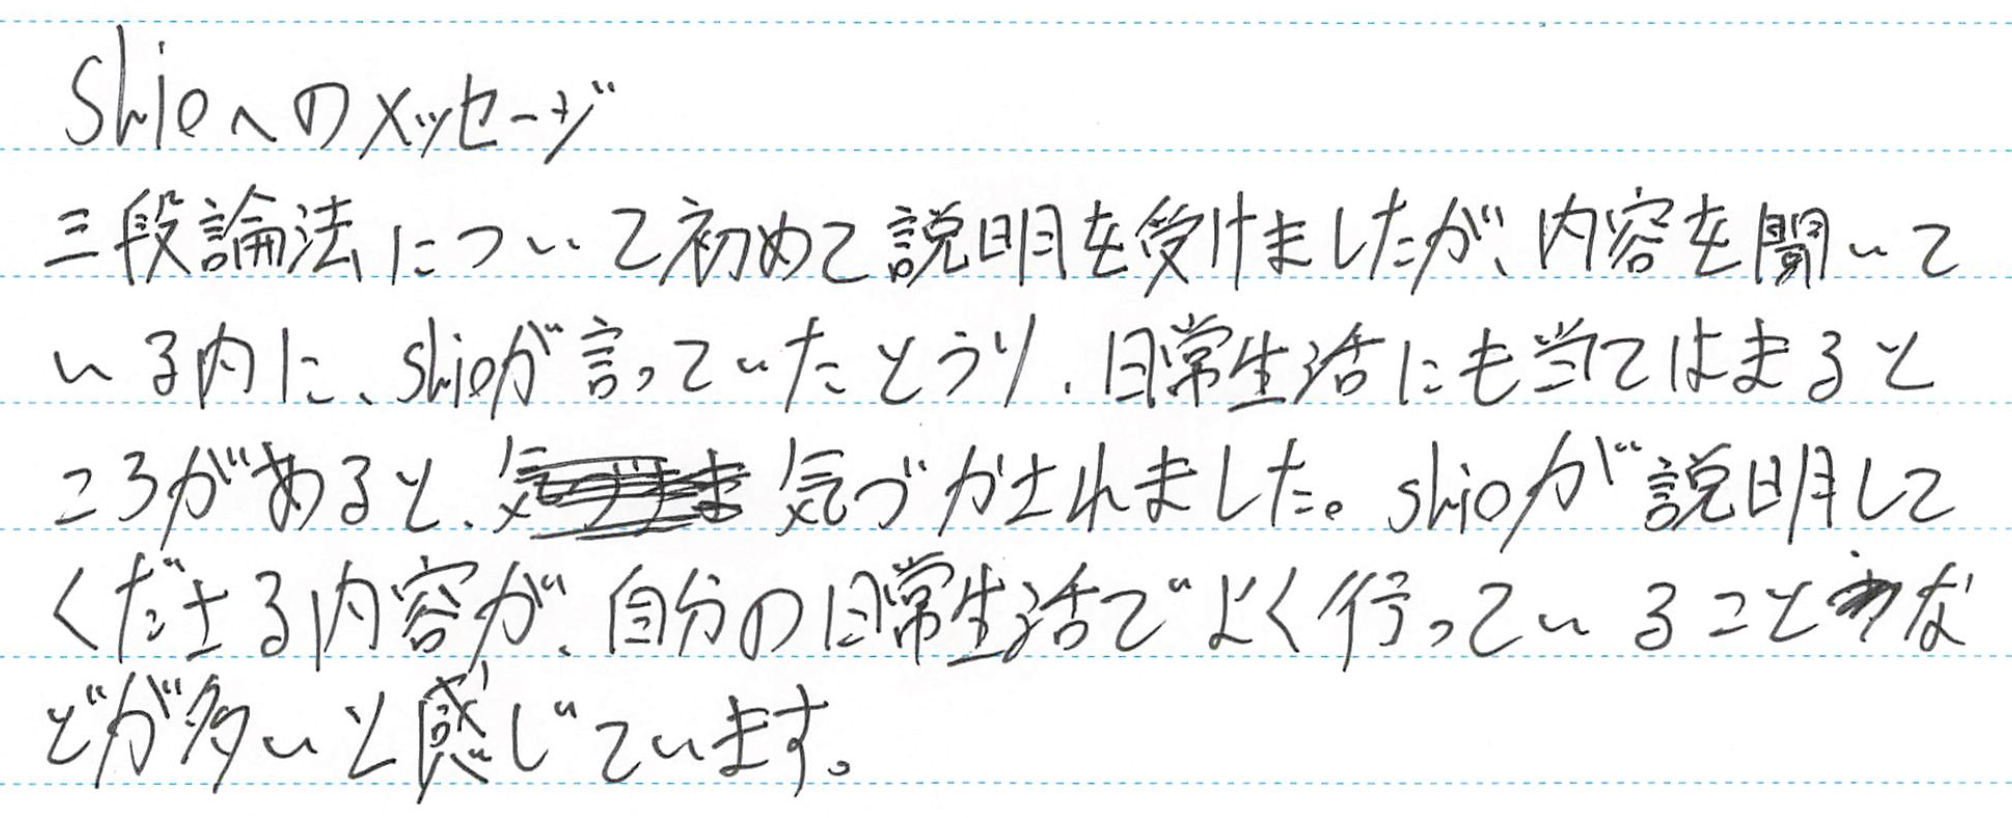 Shioへのメッセージ
三段論法について初めて説明を受けましたが、内容を聞いて
いる内に、shioが言っていたとうり、日常生活にも当てはまると
ころがあると、気づかされました。shioが説明して
くださる内容が、自分の日常生活でよく行っていることな
どが多いと感じています。